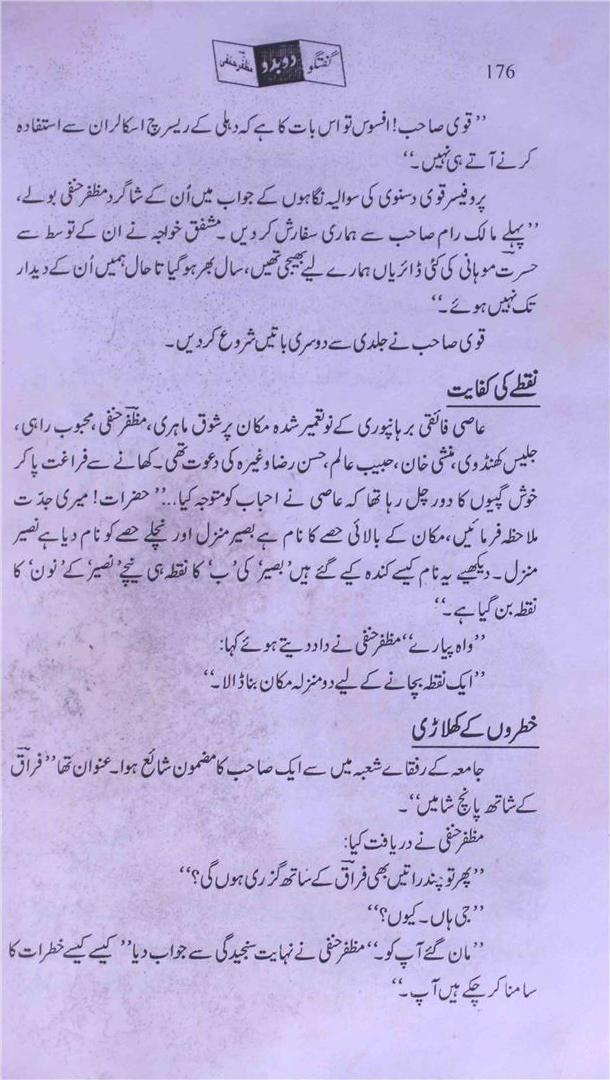 176
گفتگو دو بدو مظفر حنفی
’’قوی صاحب! افسوس تو اس بات کا ہے کہ دہلی کے ریسرچ اسکالر ان سے استفادہ
کرنے آتے ہی نہیں۔‘‘
پروفیسر قوی دسنوی کی سوالیہ نگاہوں کے جواب میں اُن کے شاگرد مظفر حنفی بولے،
’’پہلے مالک رام صاحب سے ہماری سفارش کر دیں۔ مشفق خواجہ نے ان کے توسط سے
حسرتؔ موہانی کی کئی ڈائریاں ہمارے لیے بھیجی تھیں، سال بھر ہو گیا تا حال ہمیں اُن کے دیدار
تک نہیں ہوئے۔‘‘
قوی صاحب نے جلدی سے دوسری باتیں شروع کر دیں۔
نقطے کی کفایت
عاصی فائقی برہانپوری کے نو تعمیر شدہ مکان پر شوق ماہری، مظفرؔ حنفی، محبوب راہی،
جلیس کھنڈوی، منشی خان، حبیب عالم، حسن رضا وغیرہ کی دعوت تھی۔ کھانے سے فراغت پا کر
خوش گپیوں کا دور چل رہا تھا کہ عاصی نے احباب کو متوجہ کیا... ’’حضرات! میری جدّت
ملاحظہ فرمائیں، مکان کے بالائی حصے کا نام ہے بصیر منزل اور نچلے حصے کو نام دیا ہے نصیر
منزل۔ دیکھیے یہ نام کیسے کندہ کیے گئے ہیں ’بصیر‘ کی ’ب‘ کا نقطہ ہی نیچے ’نصیر‘ کے ’نون‘ کا
نقطہ بن گیا ہے۔‘‘
’’واہ پیارے‘‘ مظفر حنفی نے داد دیتے ہوئے کہا:
’’ایک نقطہ بچانے کے لیے دو منزلہ مکان بنا ڈالا۔‘‘
خطروں کے کھلاڑی
جامعہ کے رفقاے شعبہ میں سے ایک صاحب کا مضمون شائع ہوا۔ عنوان تھا ’’فراقؔ
کے ساتھ پانچ شامیں‘‘۔
مظفر حنفی نے دریافت کیا:
’’پھر تو چند راتیں بھی فراقؔ کے ساتھ گزری ہوں گی؟‘‘
’’جی ہاں۔ کیوں؟‘‘
’’مان گئے آپ کو۔‘‘ مظفر حنفی نے نہایت سنجیدگی سے جواب دیا ’’کیسے کیسے خطرات کا
سامنا کر چکے ہیں آپ۔‘‘